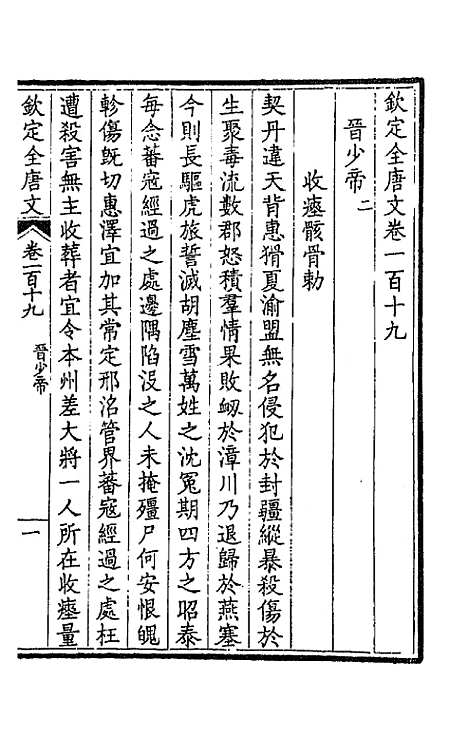 欽定全唐文卷一百十九
晉少帝二
收瘞骸骨勅
契丹違天背惠猾夏渝盟無名侵犯於封疆縱暴殺傷於
生聚毒流數郡怒積羣情果敗衂於漳川乃退歸於燕塞
今則長驅虎旅誓滅胡塵雪萬姓之沈冤期四方之昭泰
每念蕃寇經過之處邊隅陷沒之人未掩殭尸何安恨魄
軫傷既切惠澤宜加其常定邢洺管界蕃寇經過之處枉
遭殺害無主收葬者宜令本州差大將一人所在收瘞量
欽定全唐文
卷一百十九
晉少帝
一